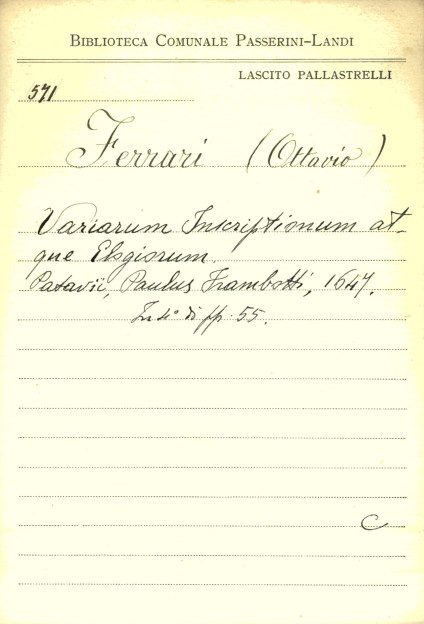 BIBLIOTECA COMUNALE PASSERINI-LANDI
LASCITO PALLASTRELLI
571
Ferrari (Ottavio)
Variarum Inscriptionum at-
que Elogiorum.
Patavii, Paulus Frambotti, 1647.
In 4° di pp. 55.
C